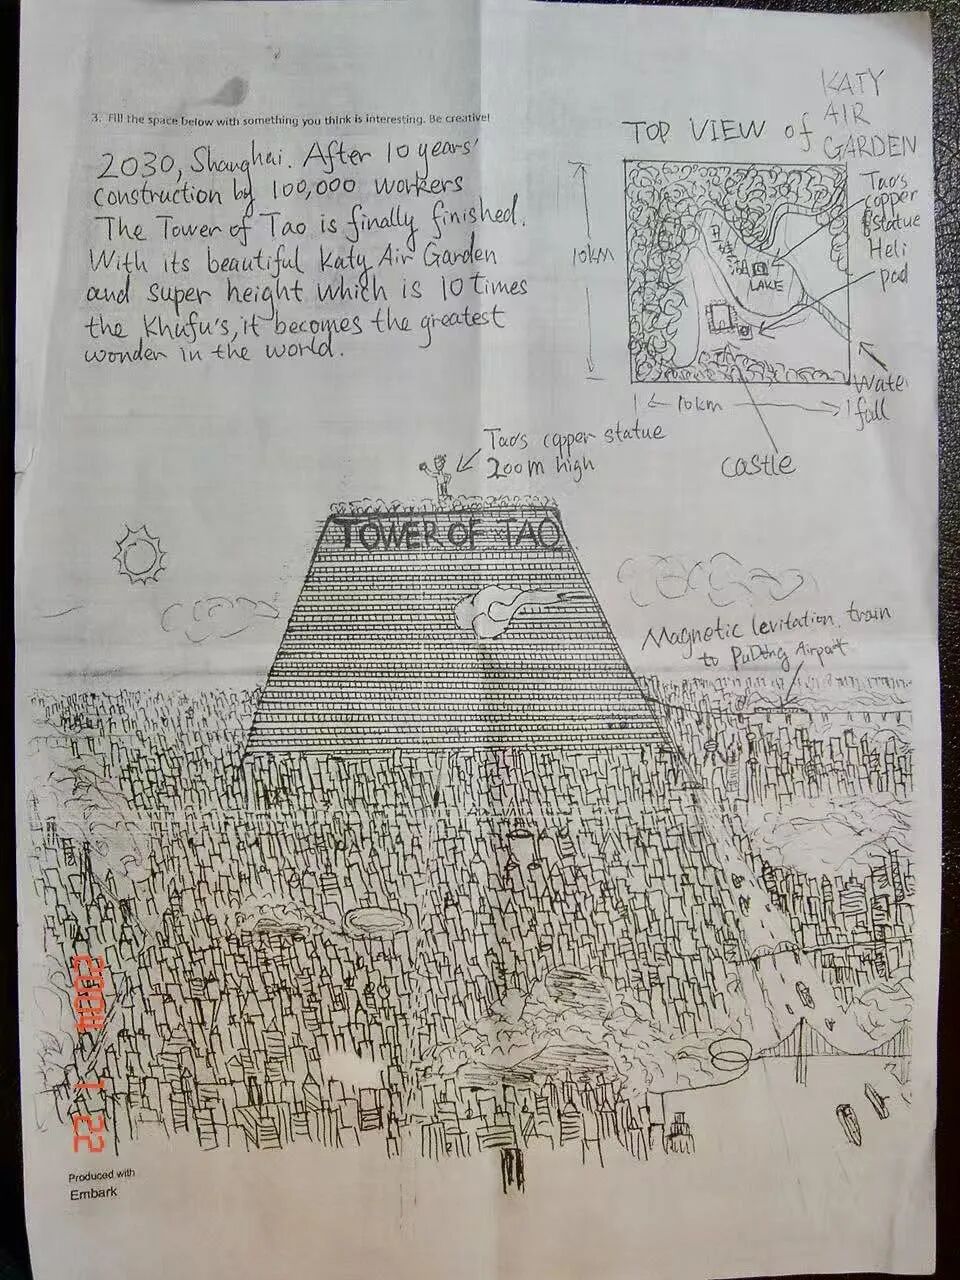 3. Fill the space below with something you think is interesting. Be creative!
2030, Shanghai. After 10 years'
construction by 100,000 workers
The Tower of Tao is finally finished.
With its beautiful Katy Air Garden
and super height which is 10 times
the Khufu's, it becomes the greatest
wonder in the world.
TOP VIEW of
KATY
AIR
GARDEN
Tao's
copper
statue
Heli
pad
10km
LAKE
Water
fall
10km
castle
Tao's copper statue
200m high
TOWER OF TAO
Magnetic levitation train
to PuDong Airport
2004 1 22
Produced with
Embark